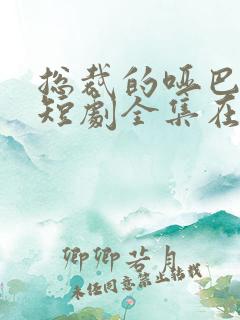 总裁的哑巴
短劇全集在
卿卿若月
未经同意禁止转载